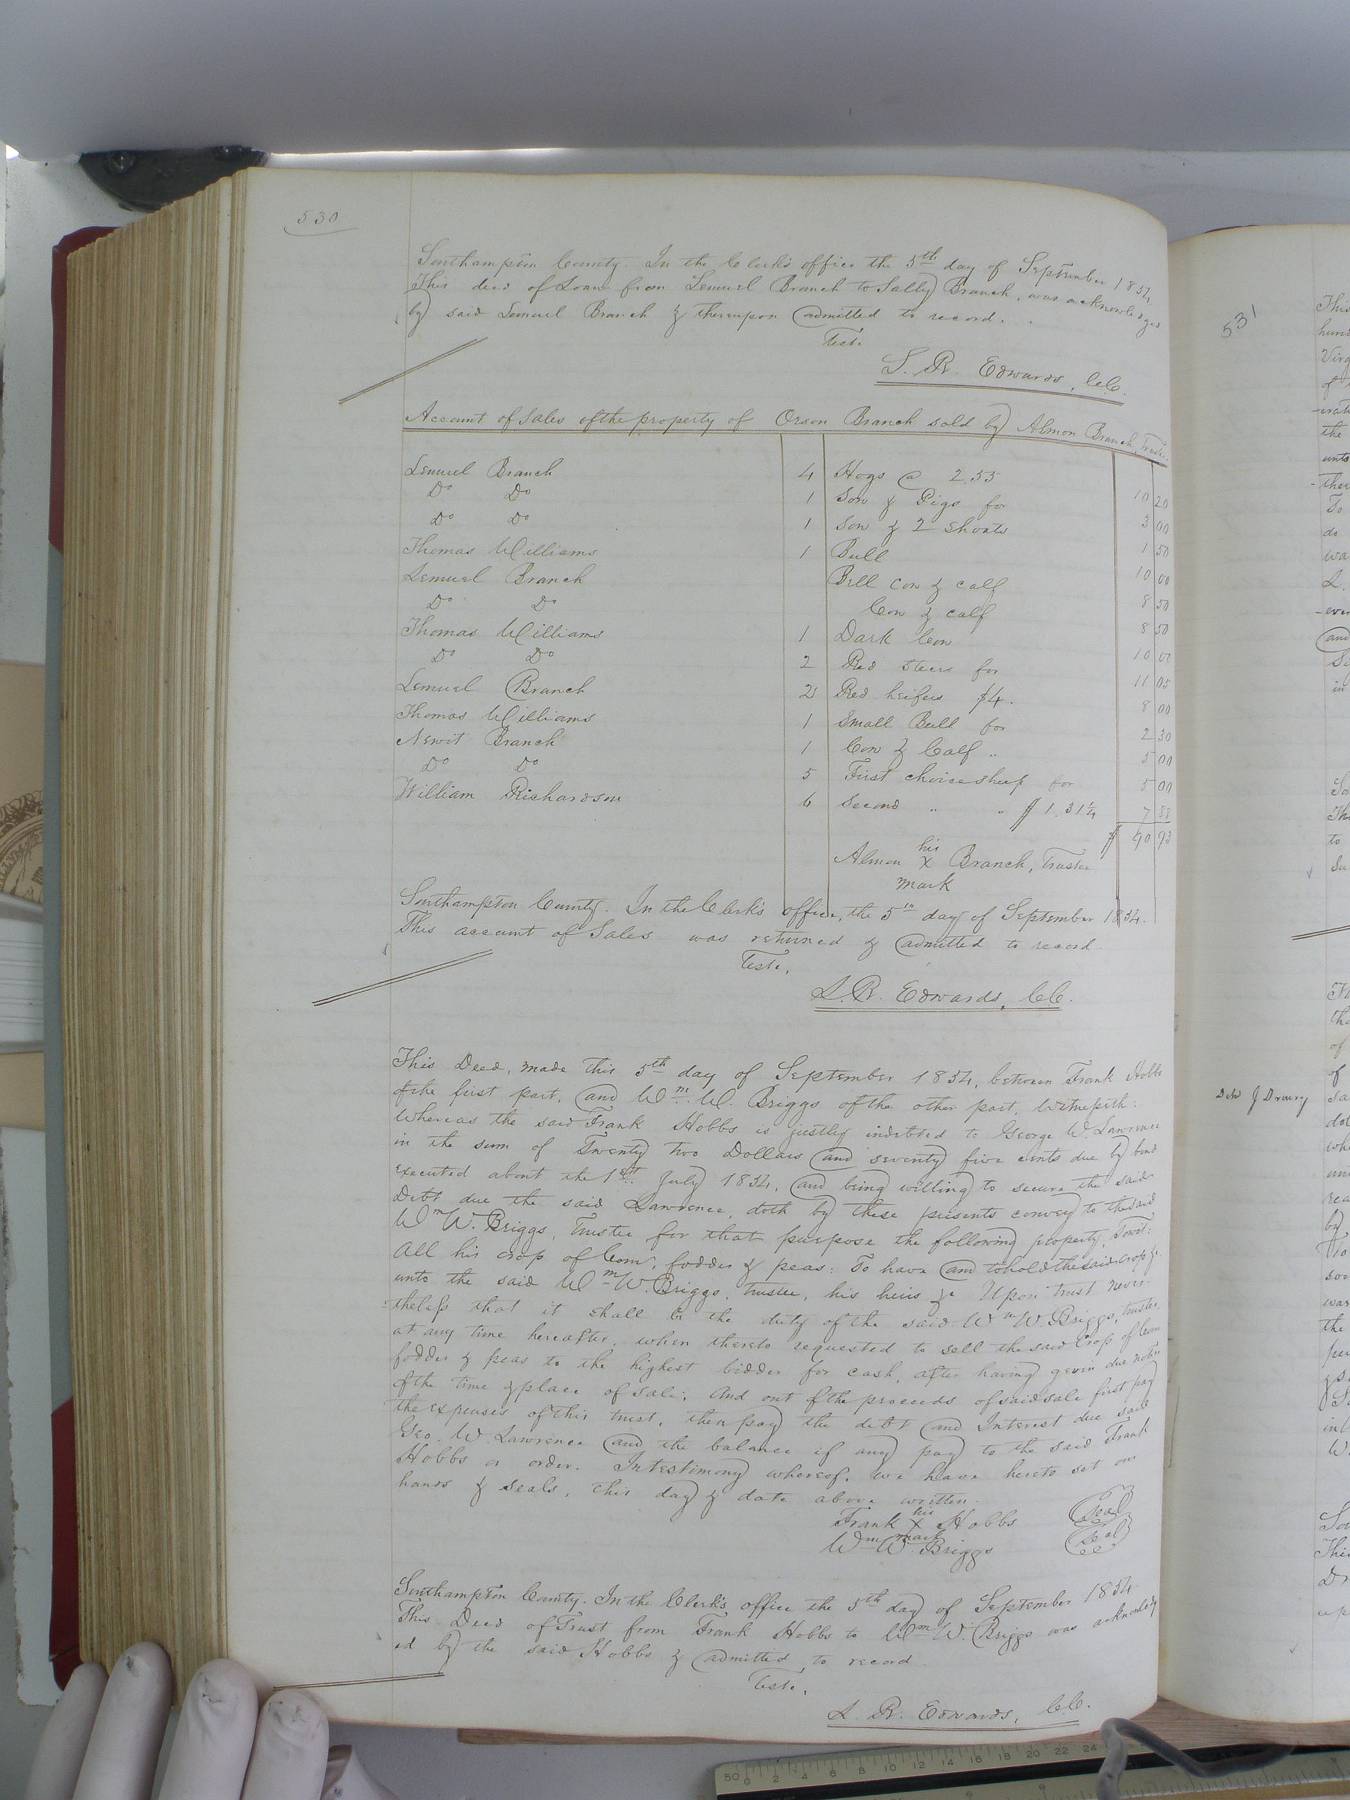 530
Southampton County. In the Clerk's office the 5th day of September 1854,
This deed of Loan from Lemuel Branch to Sally Branch, was acknowledged
by said Lemuel Branch & thereupon admitted to record.
Teste.
L. R. Edwards, C.C.
Account of Sales of the property of Orson Branch sold by Almon Branch, Trustee
Lemuel Branch 4 Hogs @ 2.55 10 20
Do Do 1 Sow & Pigs for 3 00
Do Do 1 Sow & 2 Shoats 1 50
Thomas Williams 1 Bull 10 00
Lemuel Branch Bell Cow & calf 8 50
Do Do Cow & calf 8 50
Thomas Williams 1 Dark Cow 10 00
Do Do 2 Red Steers for 11 05
Lemuel Branch 2 Red heifers $4. 8 00
Thomas Williams 1 Small Bull for 2 30
Newit Branch 1 Cow & Calf " 5 00
Do Do 5 First choice sheep for 5 00
William Richardson 6 Second " " $1.31¼ 7 88
$ 90 93
his
Almon X Branch, Trustee
mark
Southampton County. In the Clerk's office, the 5th day of September 1854.
This account of Sales was returned & admitted to record
Teste,
L. R. Edwards, C.C.
This Deed, made this 5th day of September 1854, between Frank Hobbs
of the first part, and Wm. W. Briggs of the other part, Witnesseth:
Whereas the said Frank Hobbs is justly indebted to George W. Lawrence
in the sum of Twenty two Dollars and seventy five cents due by bond
executed about the 1st July 1854, and being willing to secure the said
Debt due the said Lawrence, doth by these presents convey to the said
Wm W. Briggs, Trustee for that purpose the following property, Towit:
All his crop of Corn, fodder & peas: To have and to hold the said crop &c
unto the said Wm W. Briggs, trustee, his heirs &c Upon trust never-
-theless that it shall be the duty of the said Wm W. Briggs, trustee,
at any time hereafter, when thereto requested to sell the said Crop of Corn
fodder & peas to the highest bidder for cash, after having given due notice
of the time & place of sale; And out of the proceeds of said sale first pay
the expenses of this trust, then pay the debt and Interest due said
Geo. W. Lawrence and the balance if any pay to the said Frank
Hobbs or order. In testimony whereof, we have hereto set our
hands & seals, this day & date above written.
his
Frank X Hobbs Seal
mark
Wm W. Briggs Seal
Southampton County. In the Clerk's office the 5th day of September 1854
This Deed of Trust from Frank Hobbs to Wm W. Briggs was acknowledg
ed by the said Hobbs & admitted to record.
Teste,
L. R. Edwards, C.C.
531
This
Virg
of
the
unto
To
in
to
of
Deld J Drewry
the
by